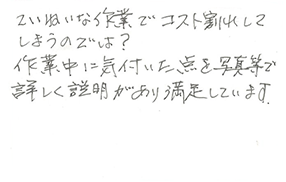 ていねいな作業でコスト割れして
しまうのでは？
作業中に気付いた点を写真等で
詳しく説明があり満足しています.